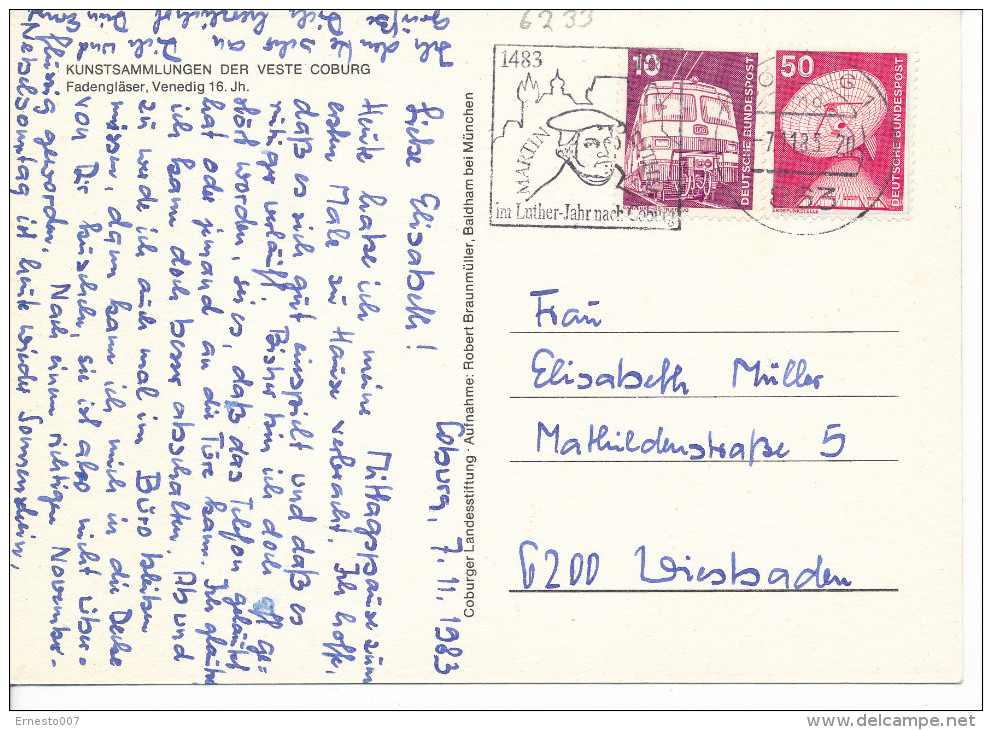 6233
KUNSTSAMMLUNGEN DER VESTE COBURG
Fadengläser, Venedig 16. Jh.
Coburger Landesstiftung · Aufnahme: Robert Braunmüller, Baldham bei München
1483
MARTIN
im Luther-Jahr nach Coburg
10
DEUTSCHE BUNDESPOST
50
DEUTSCHE BUNDESPOST
863
Coburg, 7.11.1983
Liebe Elisabeth!
Heute habe ich meine Mittagspause zum
ersten Male zu Hause verbracht. Ich hoffe,
daß es sich gut einspielt und daß es
ruhiger verläuft. Bisher bin ich doch oft ge-
stört worden, sei es, daß das Telefon geläutet
hat oder jemand an die Türe kam. Ich glaube
ich kann doch besser abschalten. Ab und
zu werde ich auch mal im Büro bleiben
müssen, dann kann ich mich in die Decke
von Dir kuscheln, sie ist also nicht über-
flüssig geworden. Nach einem richtigen November-
Nebelsonntag ist heute wieder Sonnenschein,
Frau
Elisabeth Müller
Mathildenstraße 5
6200 Wiesbaden
Ernesto007
delcampe.net